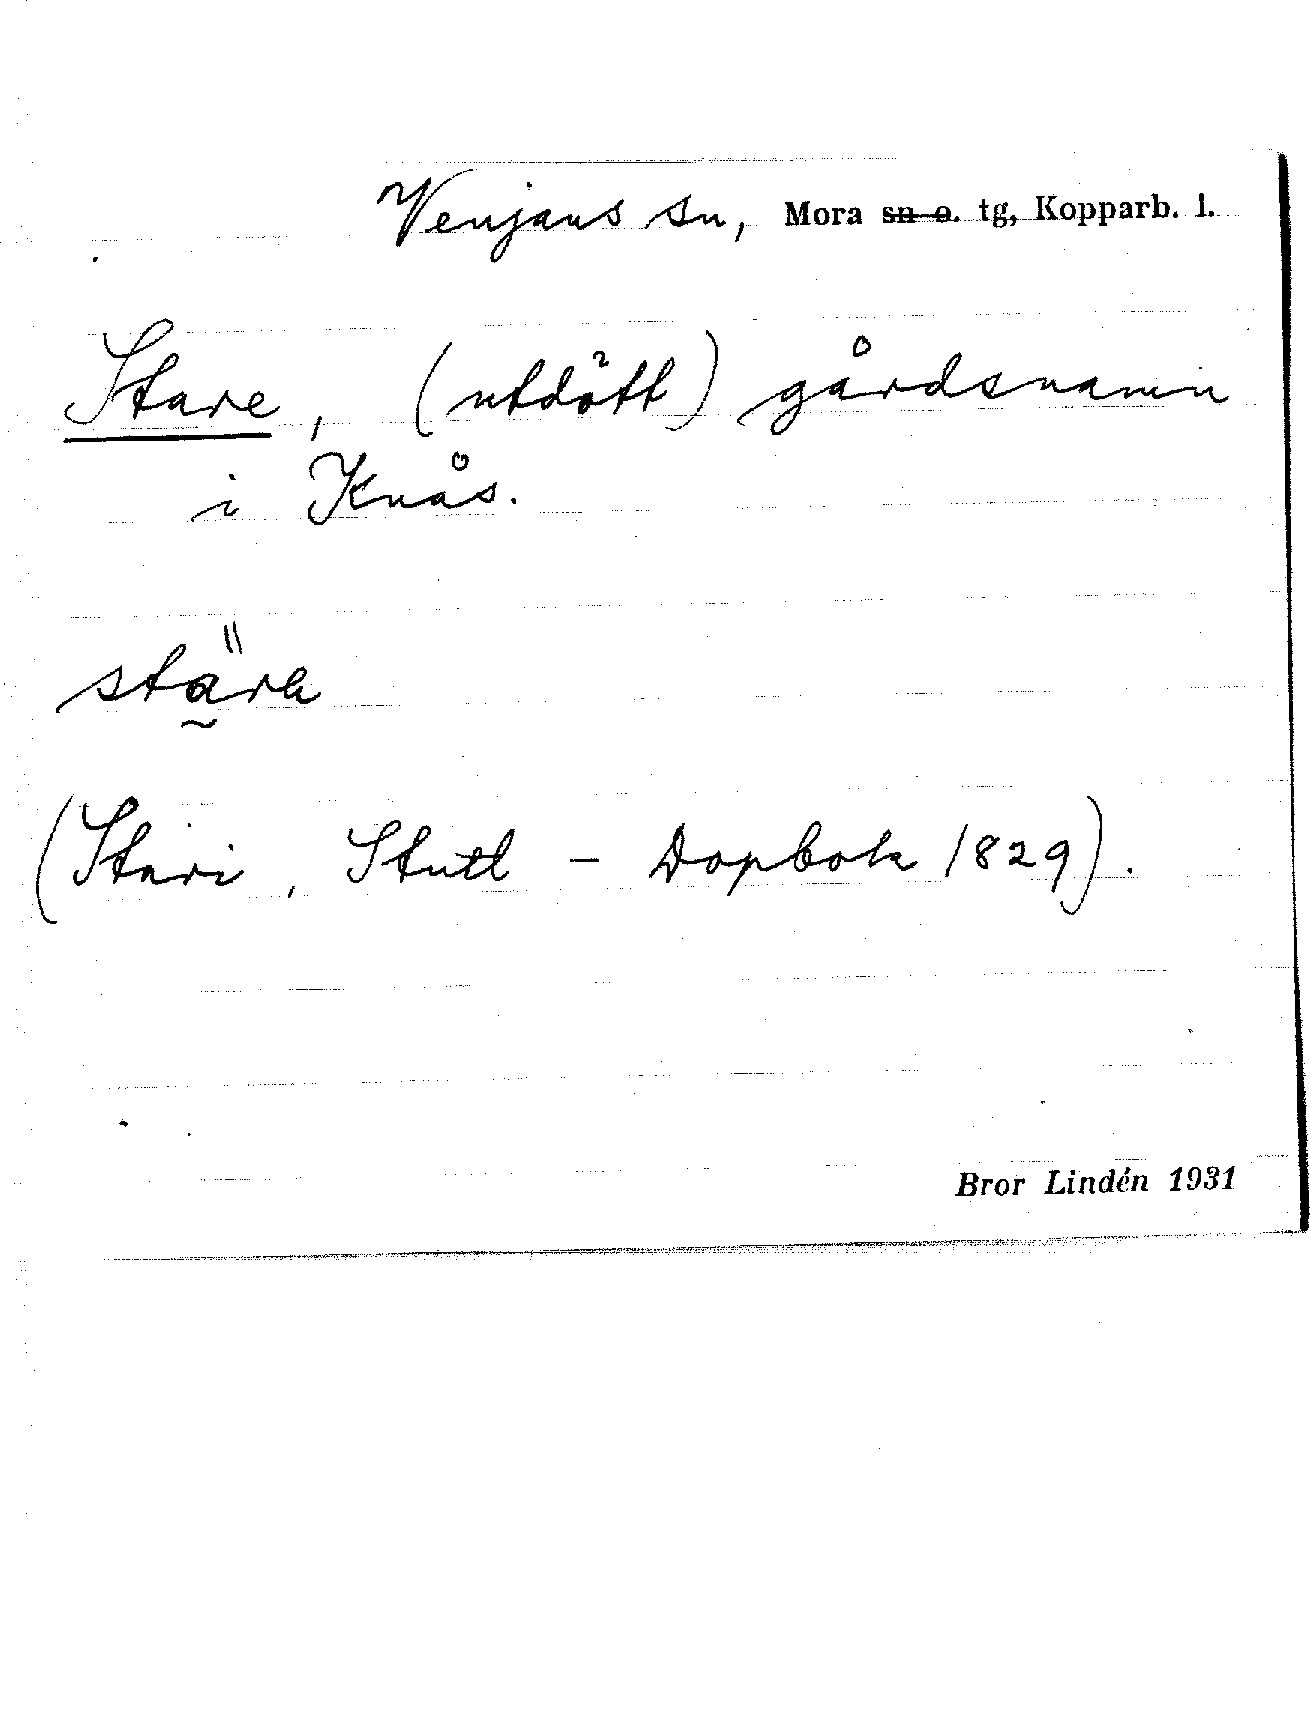 Venjans sn, Mora sn o. tg, Kopparb. l.
Stare, (utdött) gårdsnamn
i Knås.
(Stari, Stutl – Dopbok 1829).
Bror Lindén 1931